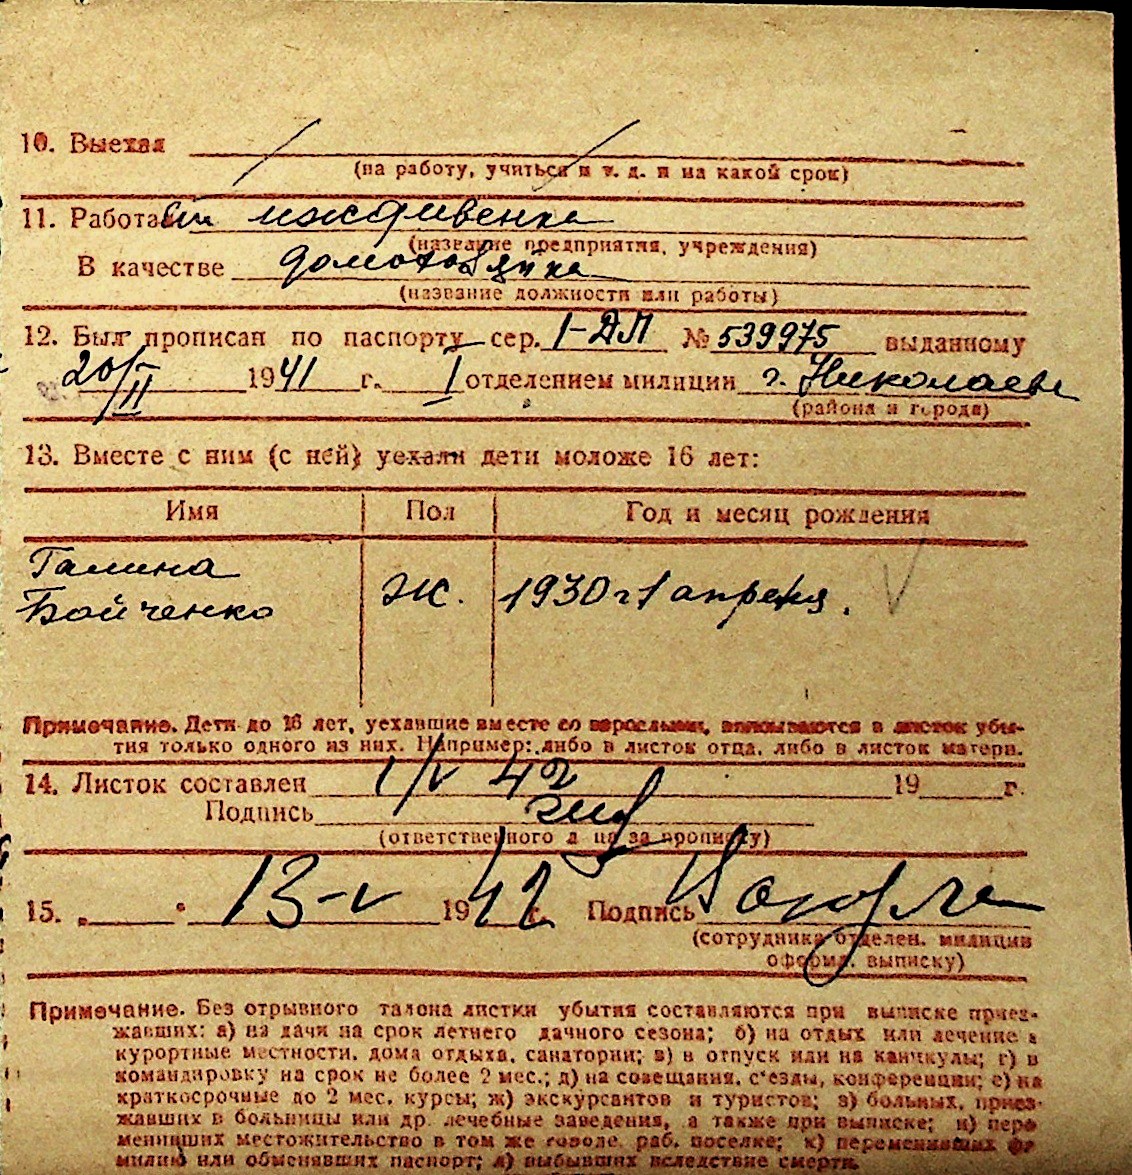 10. Выехал
(на работу, учиться и т. д. и на какой срок)
11. Работал иждивенка
(название предприятия, учреждения)
В качестве домохозяйка
(название должности или работы)
12. Был прописан по паспорту сер. 1-ДЛ № 539975 выданному
20/II 1941 г. I отделением милиции г. Николаевы
(района и города)
13. Вместе с ним (с ней) уехали дети моложе 16 лет:
Имя Пол Год и месяц рождения
Галина
Бойченко Ж. 1930 г 1 апреля.
Примечание. Дети до 16 лет, уехавшие вместе со взрослыми, вписываются в листок убы-
тия только одного из них. Например: либо в листок отца, либо в листок матери.
14. Листок составлен 1/V 42 19 г.
Подпись
(ответственного лица за прописку)
15. „ " 13-V 1942 г. Подпись
(сотрудника отделен. милиции
оформл. выписку)
Примечание. Без отрывного талона листки убытия составляются при выписке приез-
жавших: а) на дачи на срок летнего дачного сезона; б) на отдых или лечение в
курортные местности, дома отдыха, санатории; в) в отпуск или на каникулы; г) в
командировку на срок не более 2 мес.; д) на совещания, с'езды, конференции; е) на
краткосрочные до 2 мес. курсы; ж) экскурсантов и туристов; з) больных, приез-
жавших в больницы или др. лечебные заведения, а также при выписке; и) пере
менивших местожительство в том же городе, раб. поселке; к) переменивших фа
милию или обменявших паспорт; л) выбывших вследствие смерти.